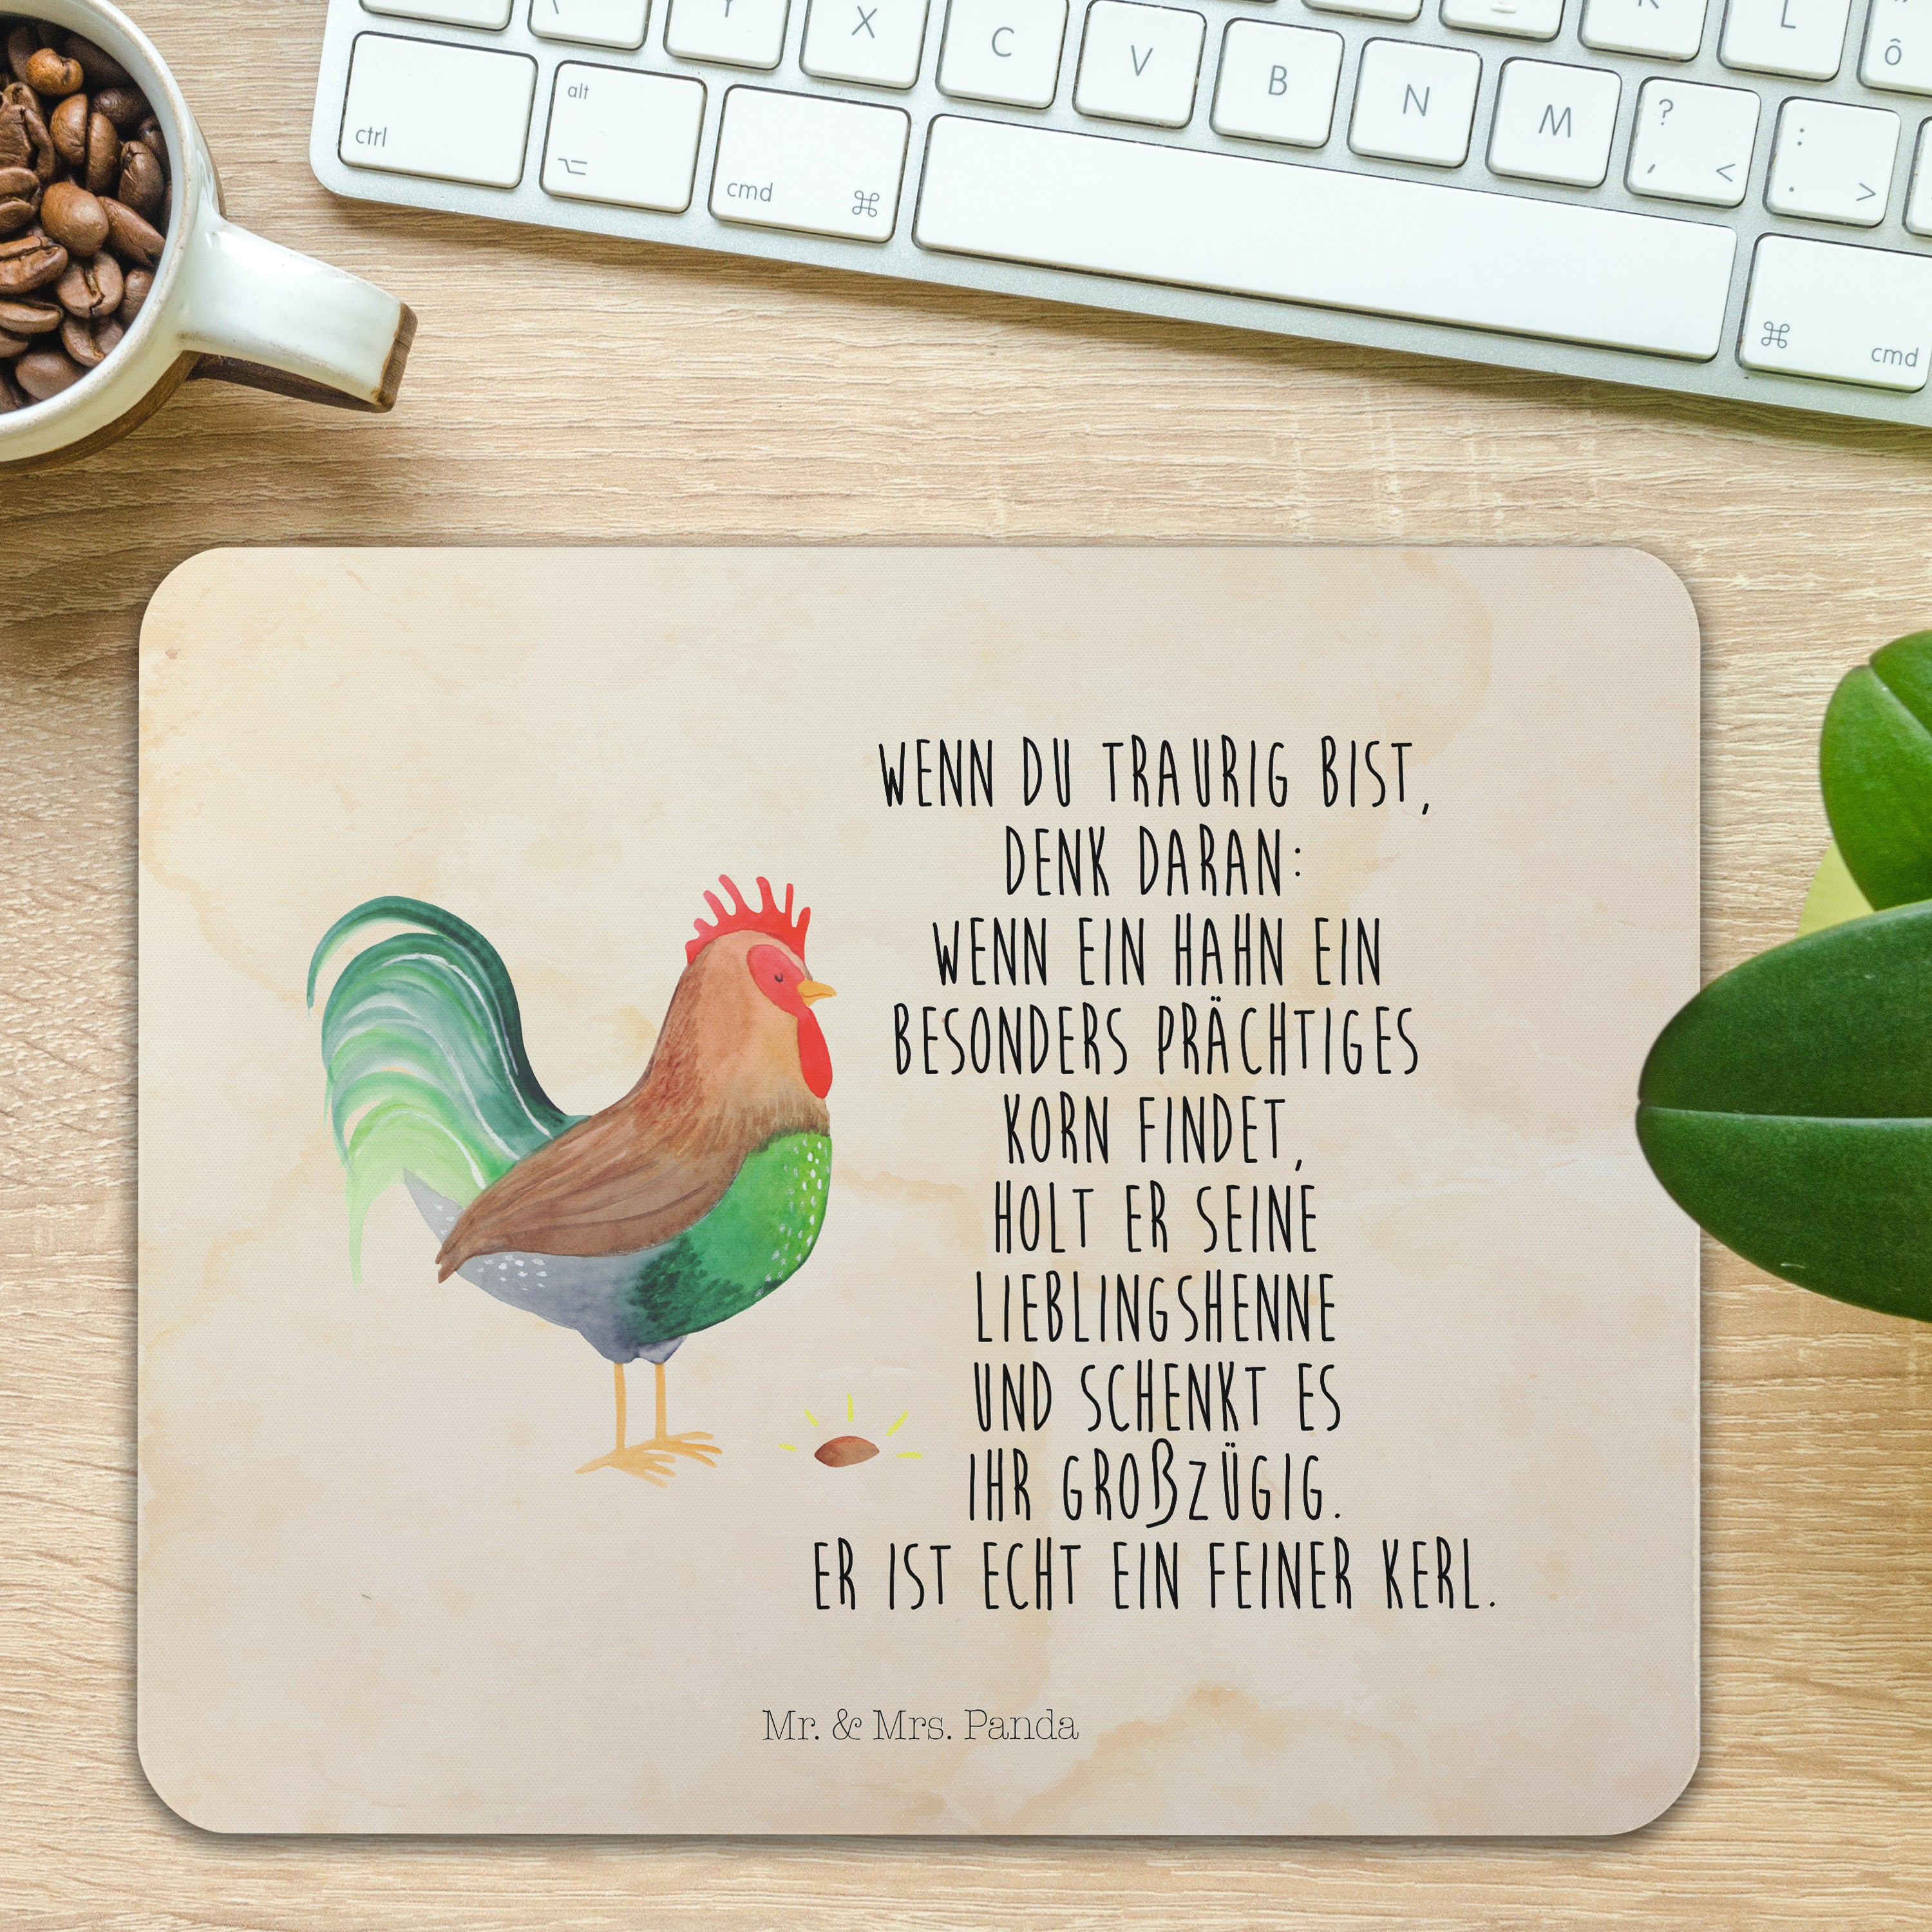 Y X C V B N M K L Ô
? , <
: . >
ctrl
alt
cmd ⌘
⌘ cmd
WENN DU TRAURIG BIST,
DENK DARAN:
WENN EIN HAHN EIN
BESONDERS PRÄCHTIGES
KORN FINDET,
HOLT ER SEINE
LIEBLINGSHENNE
UND SCHENKT ES
IHR GROßZÜGIG.
ER IST ECHT EIN FEINER KERL.
Mr. & Mrs. Panda